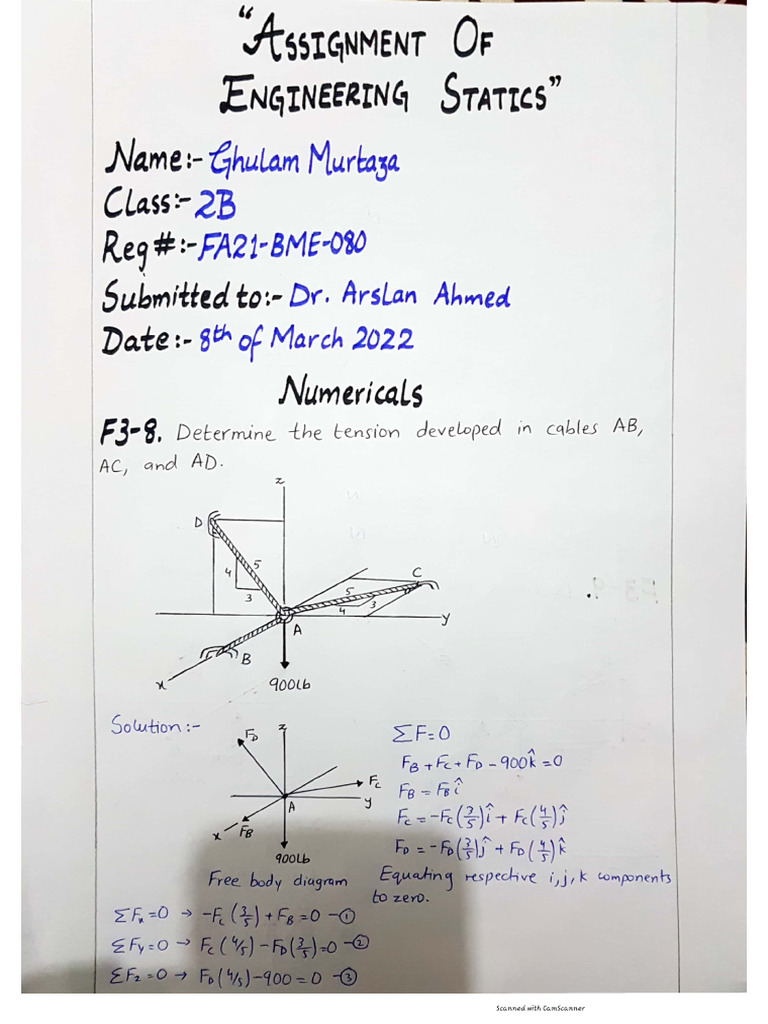 "ASSIGNMENT OF
ENGINEERING STATICS"
Name:- Ghulam Murtaza
Class:- 2B
Reg#:- FA21-BME-080
Submitted to:- Dr. Arslan Ahmed
Date:- 8th of March 2022
Numericals
F3-8. Determine the tension developed in cables AB,
AC, and AD.
z
D
5
4
3
C
5
4
3
A
y
B
x
900lb
Solution:-
F_D
z
F_C
A
y
x
F_B
900Lb
Free body diagram
ΣF=0
F_B + F_C + F_D - 900k̂ = 0
F_B = F_B î
F_C = -F_C(3/5)î + F_C(4/5)ĵ
F_D = -F_D(3/5)ĵ + F_D(4/5)k̂
Equating respective i,j,k components
to zero.
ΣFx=0 → -F_C(3/5) + F_B = 0 -①
ΣFy=0 → F_C(4/5) - F_D(3/5)=0 -②
ΣFz=0 → F_D(4/5)-900 = 0 -③
Scanned with CamScanner